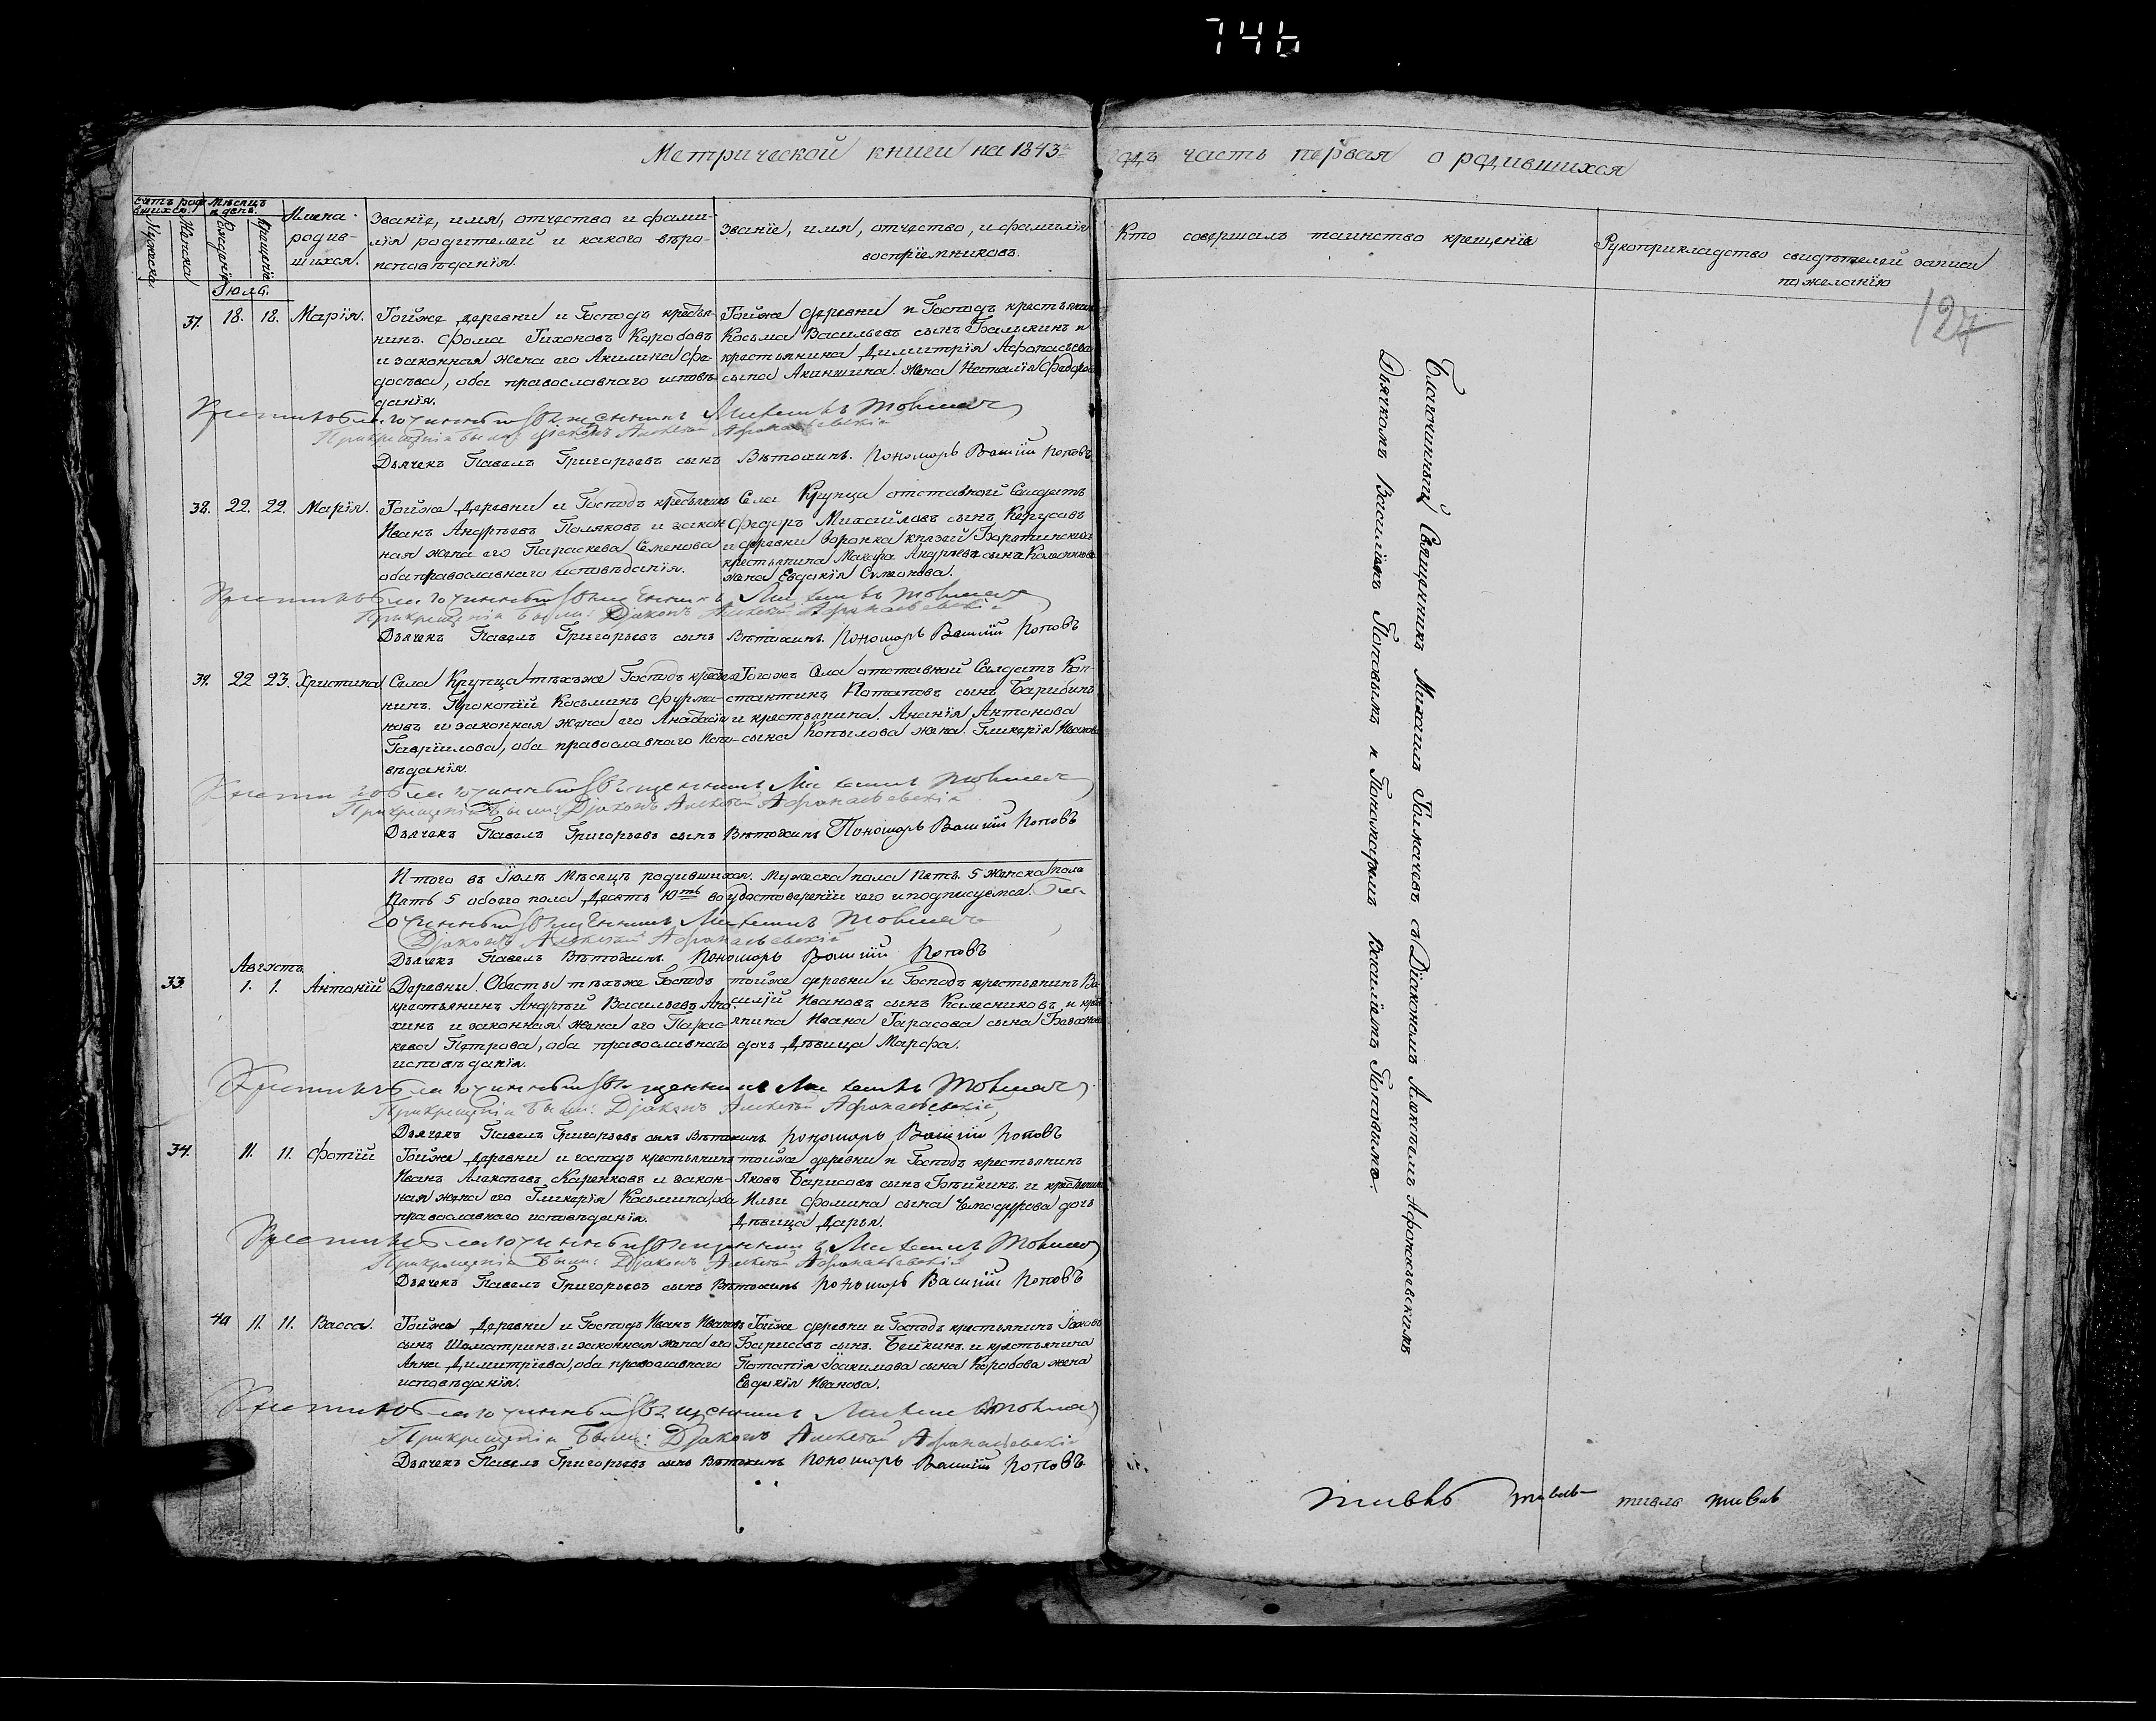 746
Метрической книги на 1843й годъ часть первая о родившихся
127
Счетъ родившихся.
Мужеска
Женска
Мѣсяцъ и день.
Рожденія
Крещенія
Имена родившихся.
Званіе, имя, отчество и фамилія родителей и какого вѣроисповѣданія.
Званіе, имя, отчество, и фамилія воспріемниковъ.
Кто совершалъ таинство крещенія
Рукоприкладство свидѣтелей записи
по желанію
Июль.
37. 18. 18. Марія.
Тойже деревни и Господъ крестья-
нинъ. Фома Тихоновъ Коробовъ
и законная жена его Акилина Фе-
досѣева, оба православнаго исповѣ-
данія.
Тойже деревни и Господъ крестьянинъ
Косьма Васильевъ сынъ и
крестьянина Димитрія Афонасьева
сына Акиншина жена Наталія
Крестилъ благочинный священникъ Михаилъ Толмачевъ
При крещеніи были: діаконъ Алексѣй Афонасьевскій
Дьячекъ Павелъ Григорьевъ сынъ Вѣтохинъ. Пономарь Василій Поповъ
38. 22. 22. Марія.
Тойже деревни и Господъ крестьянинъ
Иванъ Андреевъ Поляковъ и закон-
ная жена его Параскева Семенова
оба православнаго исповѣданія.
Села Крупца отставной Солдатъ
Федоръ Михайловъ сынъ
и деревни Воронка князей Барятинскихъ
крестьянина Макара Андреева сына
жена Евдокія
Крестилъ благочинный священникъ Михаилъ Толмачевъ
При крещеніи были: Діаконъ Алексѣй Афонасьевскій
Дьячекъ Павелъ Григорьевъ сынъ Вѣтохинъ. Пономарь Василій Поповъ
39. 22 23. Христина
Села Крупца тѣхъже Господъ крестья-
нинъ. Прокопій Косьминъ Фурма-
новъ и законная жена его
Гавріилова, оба православнаго испо-
вѣданія.
Тогожъ Села отставной Солдатъ Кон-
стантинъ Потаповъ сынъ Барибинъ
и крестьянина. Ананія Антонова
сына Копылова жена. Гликерія Иванова
Крестилъ благочинный священникъ Михаилъ Толмачевъ
При крещеніи были: Діаконъ Алексѣй Афонасьевскій
Дьячекъ Павелъ Григорьевъ сынъ Вѣтохинъ Пономарь Василій Поповъ
Итого въ Іюлѣ Мѣсяцѣ родившихся. Мужеска пола Пять. 5 Женска пола
Пять 5 обоего пола Десять 10ть во удостовереніи чего и подписуемся. Бла-
гочинный священникъ Михаилъ Толмачевъ
Діаконъ Алексѣй Афонасьевскій
Дьячекъ Павелъ Вѣтохинъ. Пономарь Василій Поповъ
Августъ
33. 1. 1. Антоній
Деревни. Обѣсты тѣхъже Господъ
крестьянинъ Андрей Васильевъ Ано-
хинъ и законная жена его Парас-
кева Петрова, оба православнаго
исповѣданія.
тойже деревни и Господъ крестьянинъ Ва-
силій Ивановъ сынъ Калесниковъ и крестья-
янина Ивана Тарасова сына
дочь Дѣвица Марфа.
Крестилъ благочинный священникъ Михаилъ Толмачевъ
При крещеніи были: Діаконъ Алексѣй Афонасьевскій
Дьячекъ Павелъ Григорьевъ сынъ Вѣтохинъ Пономарь Василій Поповъ
34. 11. 11. Фотій
Тойже деревни и господъ крестьянинъ
Иванъ Алексѣевъ Каренковъ и закон-
ная жена его Гликерія Косьмина, оба
православнаго исповѣданія.
тойже деревни и Господъ крестьянинъ
Яковъ Барисовъ сынъ и крестьянина
Ильи Фомина сына дочь
Дѣвица Дарья.
Крестилъ благочинный священникъ Михаилъ Толмачевъ
При крещеніи были: Діаконъ Алексѣй Афонасьевскій
Дьячекъ Павелъ Григорьевъ сынъ Вѣтохинъ Пономарь Василій Поповъ
40 11. 11. Васса.
Тойже Деревни и Господъ Иванъ Ивановъ
сынъ Шаматринъ. и законная жена его
Анна Димитріева, оба православнаго
исповѣданія.
Тойже деревни и Господъ крестьянинъ Яковъ
Барисовъ сынъ. и крестьянина
Потапія Іоакимова сына Коробова жена
Евдокія Иванова.
Крестилъ благочинный священникъ Михаилъ Толмачевъ
При крещеніи были: Діаконъ Алексѣй Афонасьевскій
Дьячекъ Павелъ Григорьевъ сынъ Вѣтохинъ Пономарь Василій Поповъ
Благочинный Священникъ Михаилъ Толмачевъ съ Діакономъ Алексѣемъ Афонасьевскимъ
Дьячкомъ Василіемъ Поповымъ и Пономаремъ Василіемъ Поповымъ.